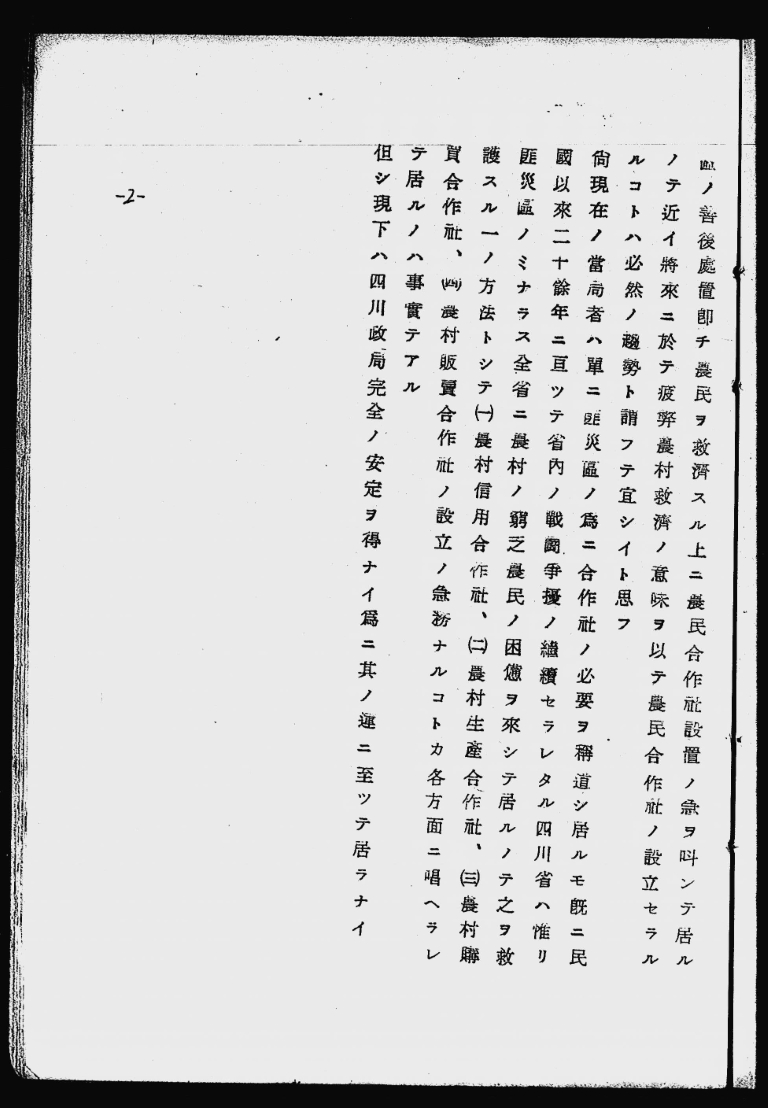 區ノ善後處置卽チ農民ヲ救濟スル上ニ農民合作社設置ノ急ヲ叫ンテ居ル
ノテ近イ將來ニ於テ疲弊農村救濟ノ意味ヲ以テ農民合作社ノ設立セラル
ルコトハ必然ノ趨勢ト謂フテ宜シイト思フ
尙現在ノ當局者ハ單ニ匪災區ノ爲ニ合作社ノ必要ヲ稱道シ居ルモ旣ニ民
國以來二十餘年ニ亘ツテ省內ノ戰鬪爭擾ノ繼續セラレタル四川省ハ惟リ
匪災區ノミナラス全省ニ農村ノ窮乏農民ノ困憊ヲ來シテ居ルノテ之ヲ救
護スル一ノ方法トシテ㈠農村信用合作社、㈡農村生產合作社、㈢農村購
買合作社、㈣農村販賣合作社ノ設立ノ急務ナルコトカ各方面ニ唱ヘラレ
テ居ルノハ事實テアル
但シ現下ハ四川政局完全ノ安定ヲ得ナイ爲ニ其ノ運ニ至ツテ居ラナイ
-2-